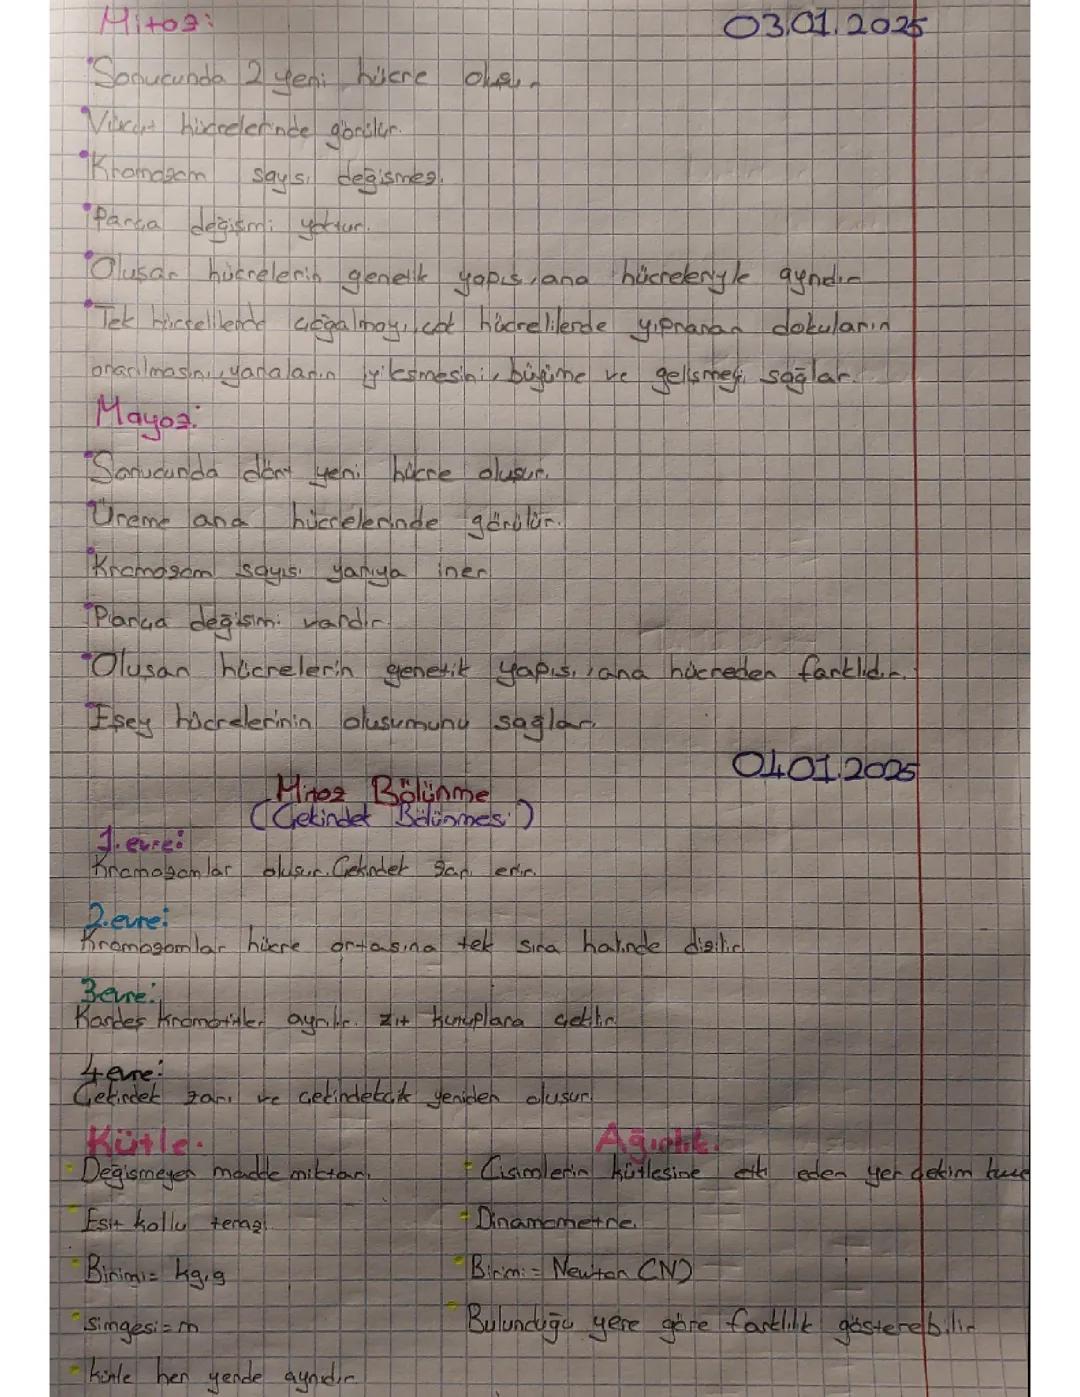 Mitoz:
03.01.2025
Sonucunda 2 yeni hücre oluşur.
Vücut hücrelerinde görülür.
Kromozom sayısı değişmez.
Parça değişimi yoktur.
Oluşan hücrelerin genetik yapısı, ana hücreleriyle aynıdır
Tek hücrelilerde çoğalmayı, çok hücrelilerde yıpranan dokuların
onarılmasını, yaraların iyileşmesini, büyüme ve gelişmeyi sağlar.
Mayoz:
Sonucunda dört yeni hücre oluşur.
Üreme ana hücrelerinde görülür.
Kromozom sayısı yarıya iner.
Parça değişimi vardır.
Oluşan hücrelerin genetik yapısı, ana hücreden farklıdır.
Eşey hücrelerinin oluşumunu sağlar.
04.01.2025
Mitoz Bölünme
(Çekirdek Bölünmesi)
1.evre:
Kromozomlar oluşur. Çekirdek zarı erir.
2.evre:
Kromozomlar hücre ortasına tek sıra halinde dizilir
3.evre:
Kardeş kromatidler ayrılır. zıt kutuplara çekilir
4.evre:
Çekirdek zarı ve çekirdekcik yeniden oluşur.
Kütle.
Ağırlık.
Değişmeyen madde miktarı.
Cisimlerin kütlesine etki eden yer çekim
Eşit kollu terazi.
Dinamometre.
Birimi= kg,g
Birimi= Newton (N)
simgesi= m
Bulunduğu yere göre farklılık gösterebilir
kütle her yerde aynıdır